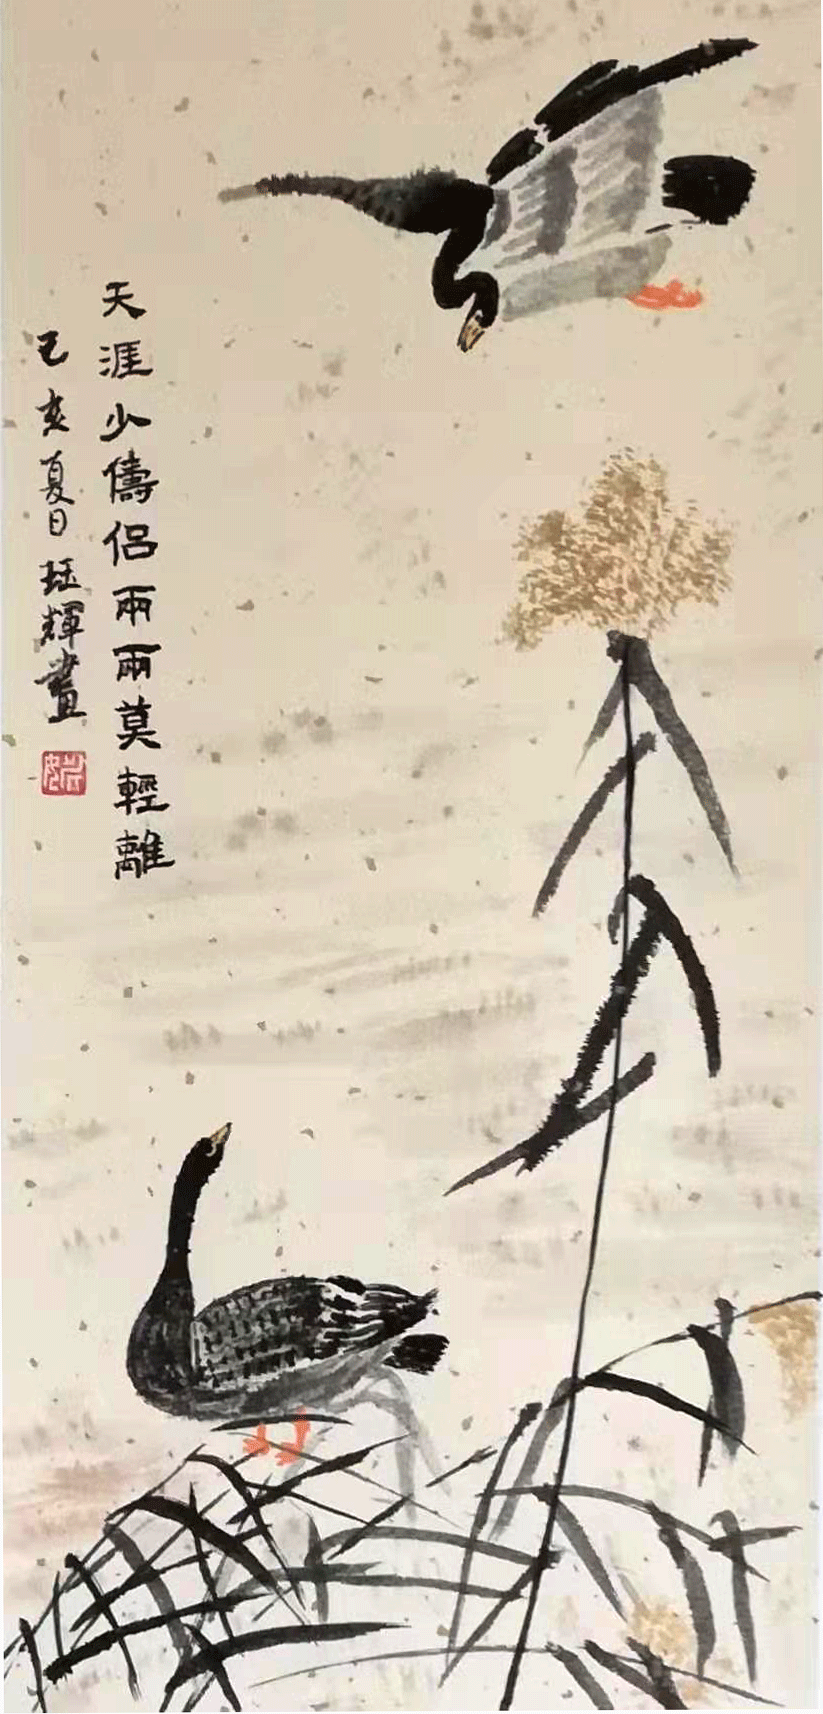 天涯少儔侣兩兩莫輕離
己亥夏日珏輝畫